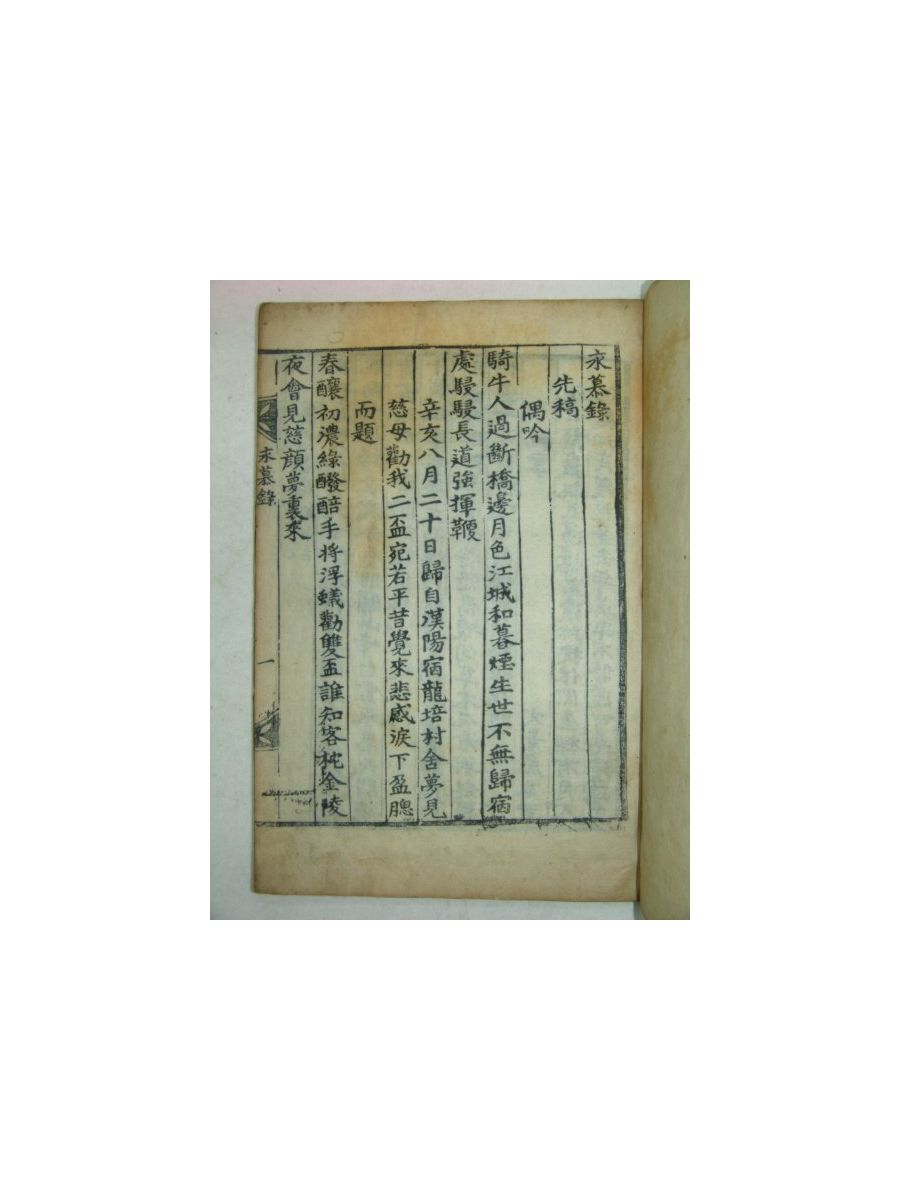 永慕錄
先稿
偶吟
騎牛人過斷橋邊月色江城和暮煙生世不無歸宿
處駸駸長道強揮鞭
辛亥八月二十日歸自漢陽宿龍培村舍夢見
慈母勸我二盃宛若平昔覺來悲感淚下盈腮
而題
春釀初濃綠醱醅手將浮蟻勸雙盃誰知客枕金陵
夜會見慈顔夢裏來
永慕錄
一